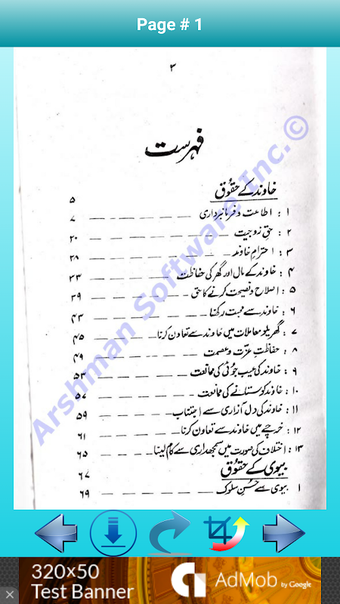 Page # 1
۳
فہرست
خاوند کے حقوق ۵
۱ : اطاعت و فرمانبرداری ۷
۲ : حق زوجیت ۲۰
۳ : احترامِ خاوند ۲۸
۴ : خاوند کے مال اور گھر کی حفاظت ۳۳
۵ : اصلاح و نصیحت کرنے کا حق ۳۹
۶ : خاوند سے محبت رکھنا ۴۳
۷ : گھریلو معاملات میں خاوند سے تعاون کرنا ۴۵
۸ : حفاظتِ عزت و عصمت ۴۹
۹ : خاوند کی عیب جوئی کی ممانعت ۵۳
۱۰ : خاوند کو ستانے کی ممانعت ۵۷
۱۱ : خاوند کی دل آزاری سے اجتناب ۵۹
۱۲ : خرچے میں خاوند سے تعاون کرنا ۶۱
۱۳ : اختلاف کی صورت میں سمجھداری سے کام لینا ۶۵
بیوی کے حقوق ۶۷
۱ بیوی سے حُسنِ سلوک ۶۹
Arshman Software Inc.©
320x50
Test Banner
AdMob by Google